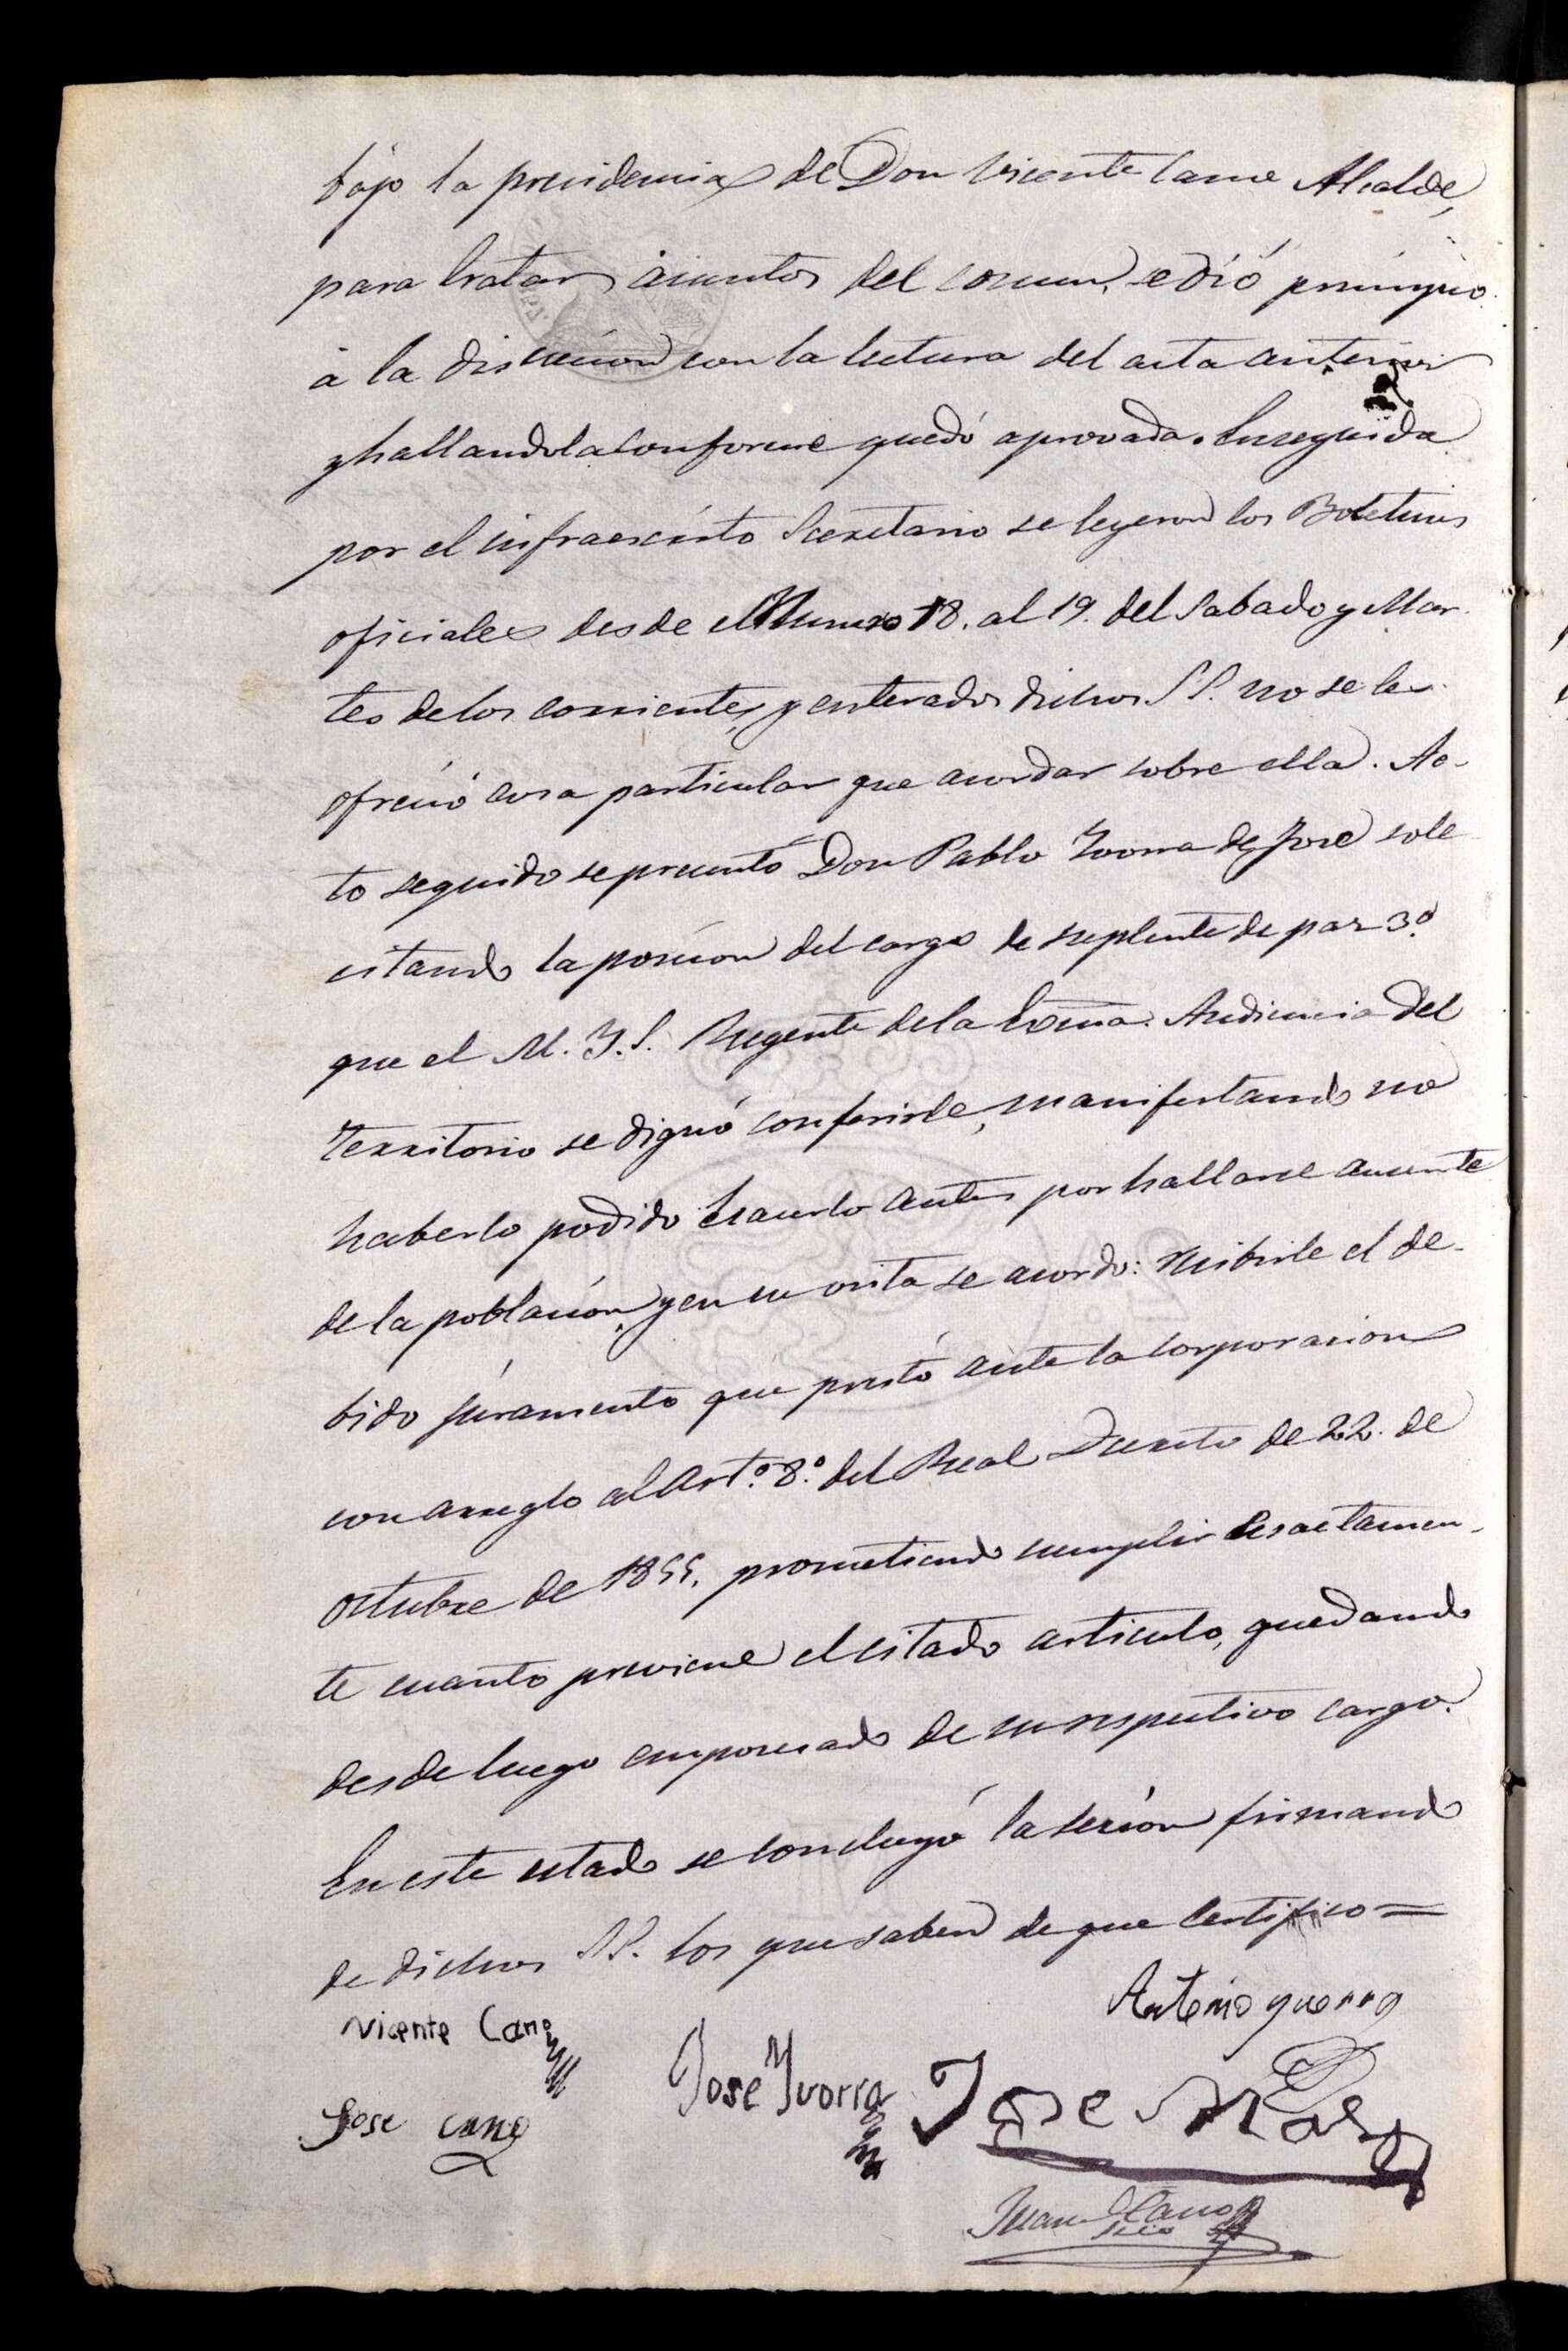 bajo la presidencia de Don Vicente Cano Alcalde,
para tratar asuntos del comun, se dió principio
á la discucion con la lectura del acta anterior
y hallandola conforme quedó aprovada. Enseguida
por el infraescrito Secretario se leyeron los Boletines
oficiales desde el Numero 18. al 19. del Sabado y Mar-
tes de los corrientes, y enterados dichos S.S. no se les
ofreció cosa particular que acordar sobre ella. Ac-
to seguido se presentó Don Pablo Ivorra de José soli-
citando la posecion del cargo de suplente de paz 3.º
que el M. I. S. Regente de la Exma. Audiencia del
Territorio se dignó conferirle, manifestando no
haberlo podido hacerlo antes por hallarse ausente
de la población, y en su vista se acordo: recibirle el de-
bido juramento que prestó ante la corporacion
con arreglo al Art.º 8.º del Real Decreto de 22. de
Octubre de 1855. prometiendo cumplir esactamen-
te cuanto previene el citado articulo, quedando
desde luego emposecado de su respectivo cargo.
En este estado se concluyó la seción firmando
de dichos S.S. los que saben de que Certifico =
Antonio guerra
Vicente Cano
José Ivorra Jose
Jose cano
Juan Cano
Srio